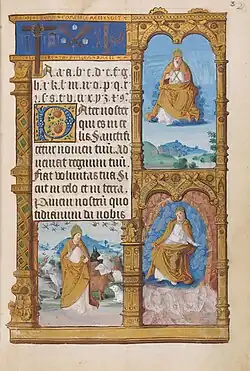 A.a.b.c.d.e.f.g
h.i.k.l.m.n.o.p.q.
Pater noster
qui es in ce
lis Sanctifi
cetur nomen tuū. Ad
ueniat regnum tuū.
Fiat voluntas tua Si
cut in celo et in terra.
Panem nostrū quo
tidianum da nobis